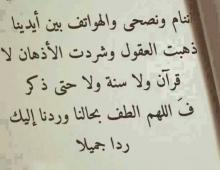 ننام ونصحى والهواتف بين أيدينا
ذهبت العقول وشردت الأذهان لا
قرآن ولا سنة ولا حتى ذكر
فَ اللهم الطف بحالنا وردنا إليك
ردا جميلا